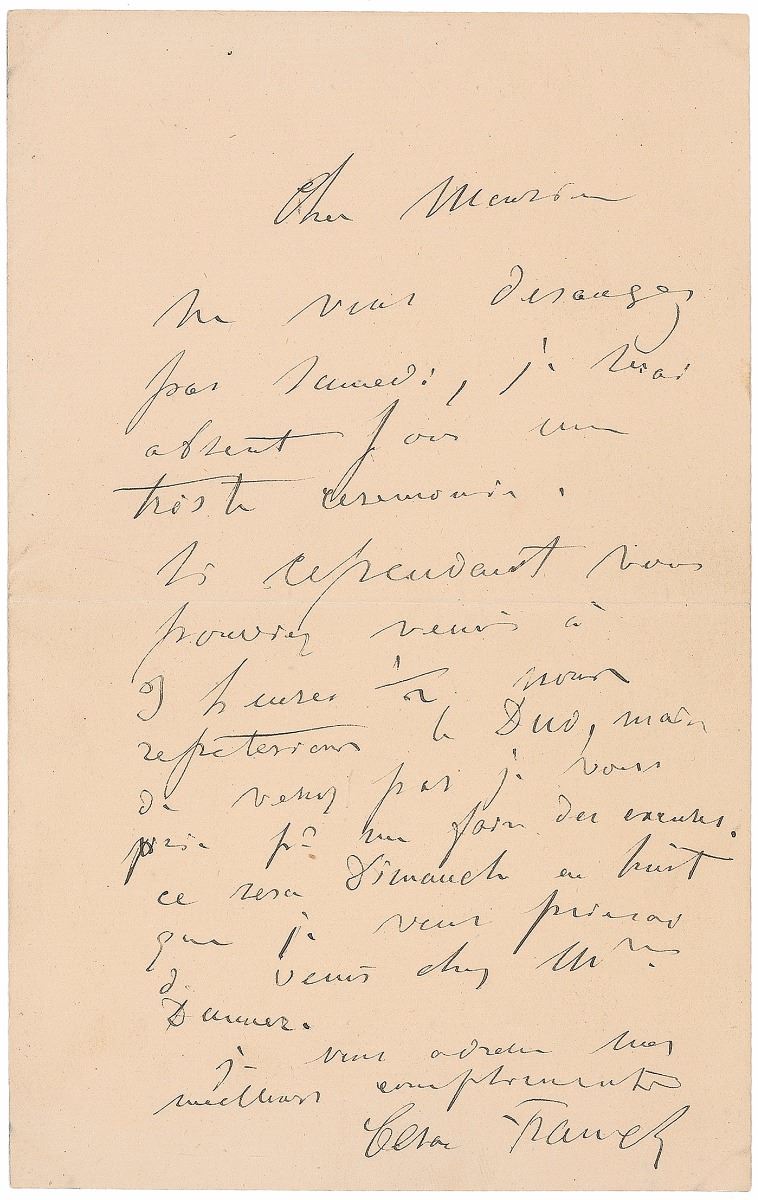 Cher Monsieur
Ne vous derangez
pas Samedi, je serai
absent pour une
triste ceremonie.
Si cependant vous
pouviez venir à
heures 1/2 nous
repeterions le Duo, mais
ne venez pas je vous
prie pr me faire des excuses.
ce sera Dimanche en huit
que je vous prierai
de venir chez Mme
je vous adresse mes
meilleurs compliments
Cesar Franck